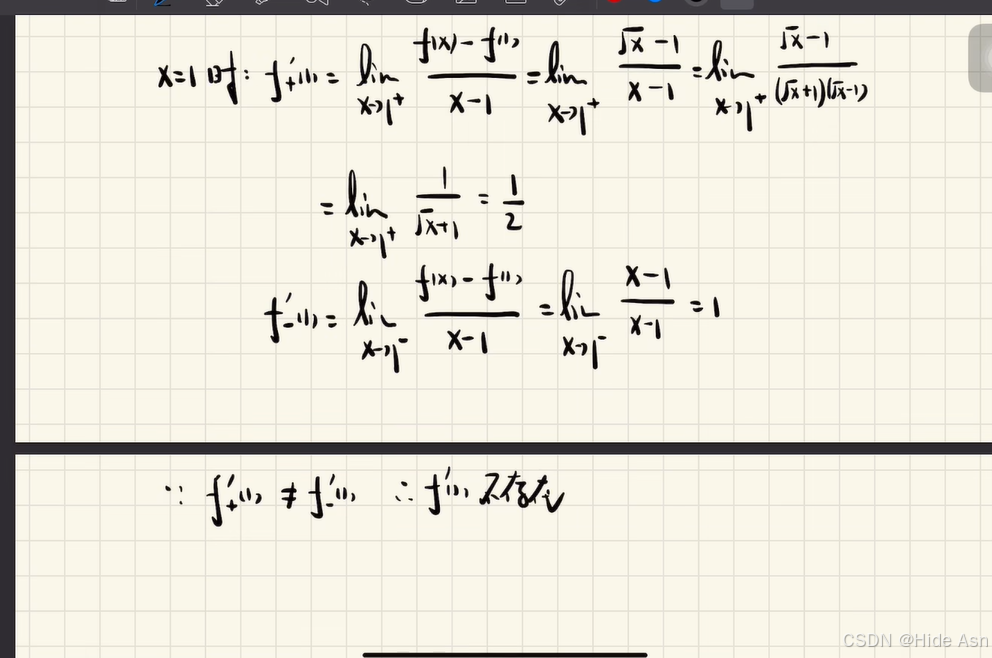 x=1时: f₊'(1) = lim_{x→1⁺} (f(x)-f(1))/(x-1) = lim_{x→1⁺} (√x-1)/(x-1) = lim_{x→1⁺} (√x-1)/((√x+1)(√x-1))
= lim_{x→1⁺} 1/(√x+1) = 1/2
f₋'(1) = lim_{x→1⁻} (f(x)-f(1))/(x-1) = lim_{x→1⁻} (x-1)/(x-1) = 1
∵ f₊'(1) ≠ f₋'(1) ∴ f'(1) 不存在
CSDN @Hide Asn